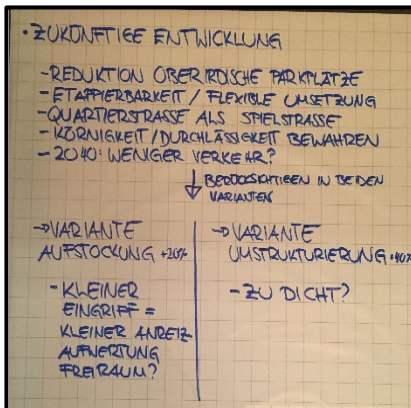 • ZUKÜNFTIGE ENTWICKLUNG
- REDUKTION OBERIRDISCHE PARKPLÄTZE
- ETAPPIERBARKEIT / FLEXIBLE UMSETZUNG
- QUARTIERSTRASSE ALS SPIELSTRASSE
- KÖRNIGKEIT/DURCHLÄSSIGKEIT BEWAHREN
- 2040: WENIGER VERKEHR?
↓ BERÜCKSICHTIGEN IN BEIDEN
VARIANTEN
→ VARIANTE
AUFSTOCKUNG +20%
- KLEINER
EINGRIFF =
KLEINER ANREIZ
AUFWERTUNG
FREIRAUM?
→ VARIANTE
UMSTRUKTURIERUNG +40%
- ZU DICHT?